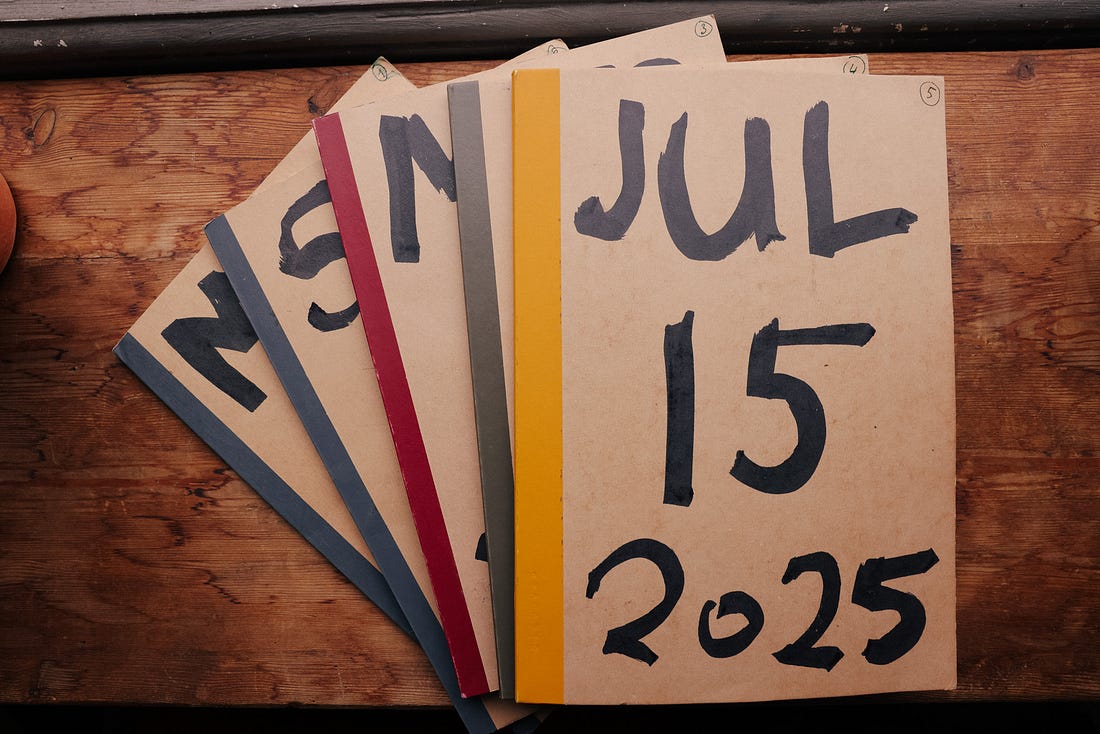 5
JUL
15
2025
4
3
N
5
M